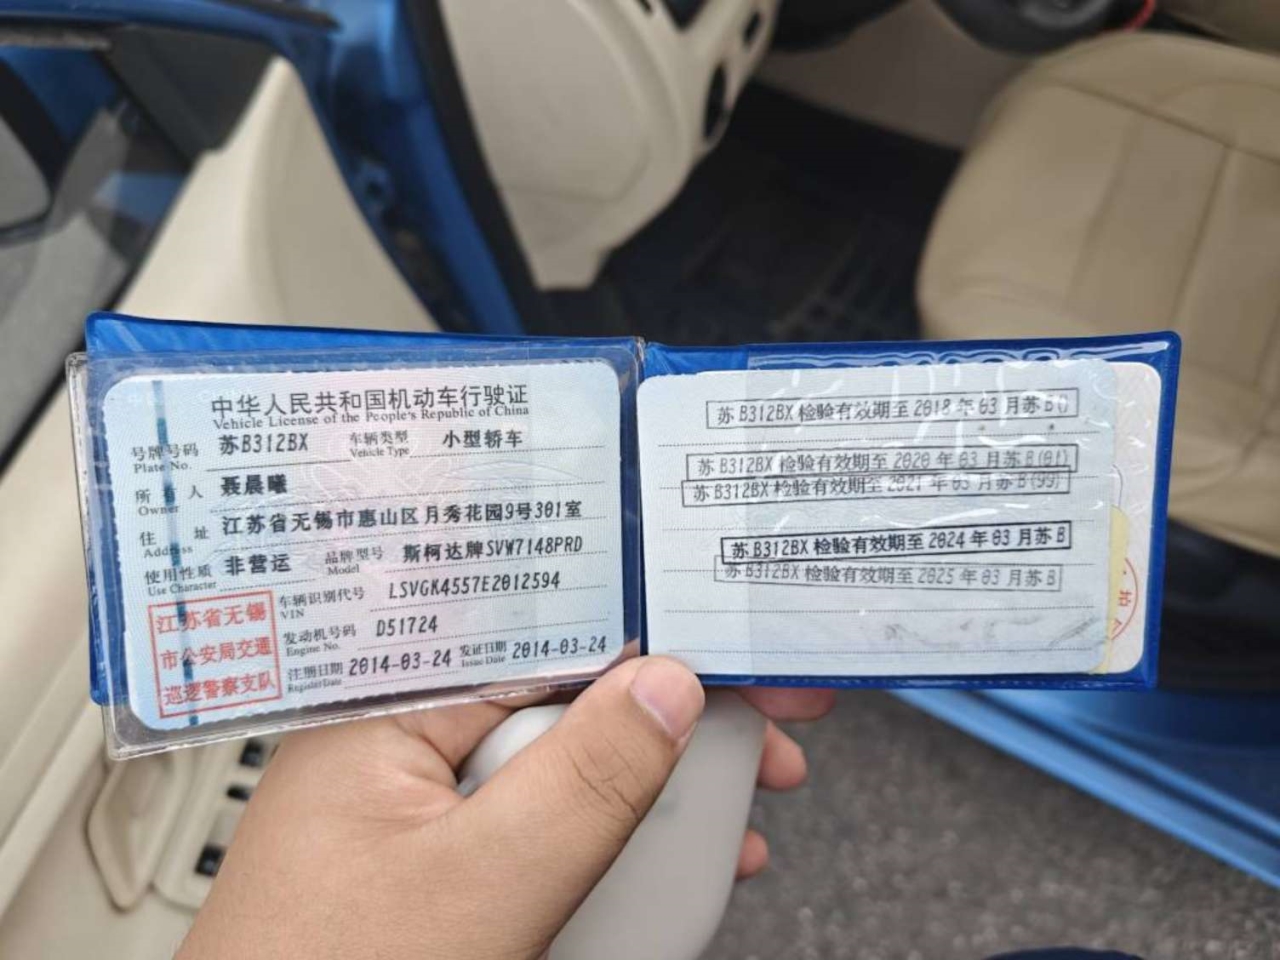 中华人民共和国机动车行驶证
Vehicle License of the People's Republic of China
号牌号码 苏B312BX 车辆类型 小型轿车
Plate No. Vehicle Type
所有人 聂晨曦
Owner
住址 江苏省无锡市惠山区月秀花园9号301室
Address
使用性质 非营运 品牌型号 斯柯达牌SVW7148PRD
Use Character Model
车辆识别代号 LSVGK4557E2012594
VIN
发动机号码 D51724
Engine No.
注册日期 2014-03-24 发证日期 2014-03-24
Register Date Issue Date
江苏省无锡
市公安局交通
巡逻警察支队
苏B312BX 检验有效期至 2018 年 03 月苏 B()
苏B312BX 检验有效期至 2020 年 03 月苏 B(01)
苏B312BX 检验有效期至 2021 年 03 月苏 B(99)
苏B312BX 检验有效期至 2024 年 03 月苏 B
苏B312BX 检验有效期至 2025 年 03 月苏 B